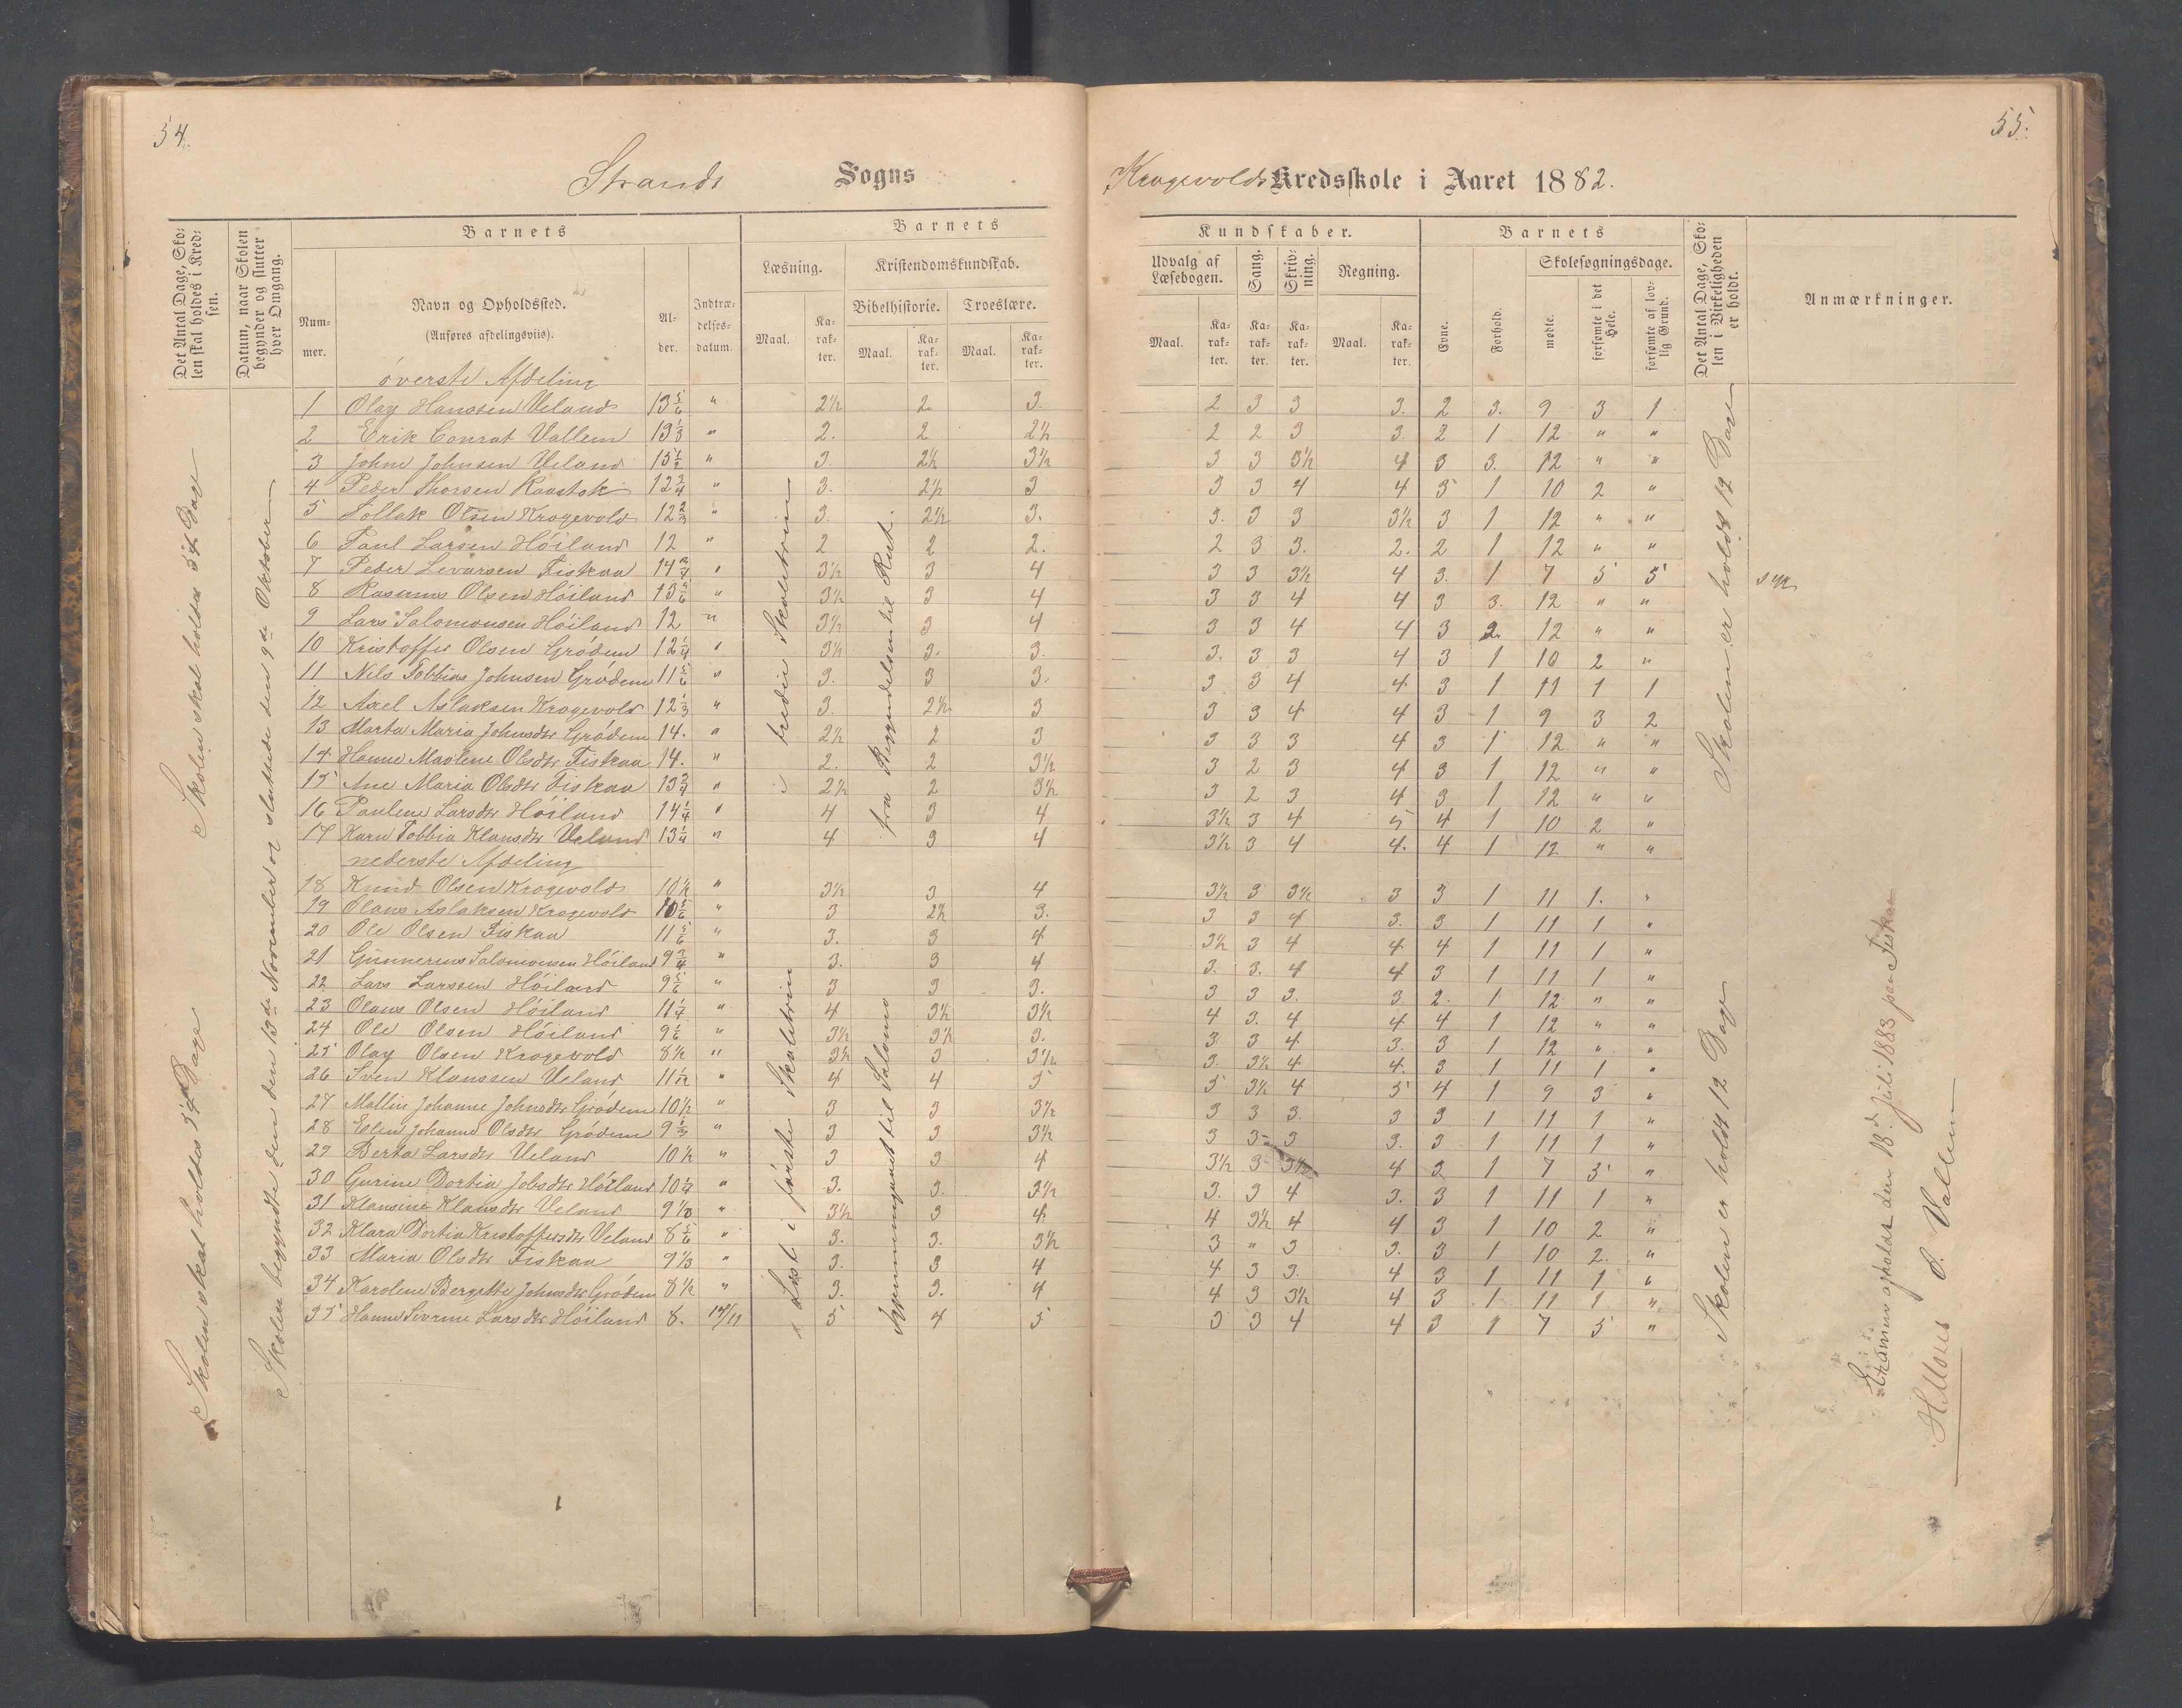 54.
Strands Sogns
Det Antal Dage, Sko-
len skal holdes i Kred-
sen.
Datum, naar Skolen
begynder og slutter
hver Omgang.
Barnets
Num-
mer.
Navn og Opholdssted.
(Anføres afdelingsviis).
Al-
der.
Indtræ-
delses-
datum.
Barnets
Læsning.
Maal.
Ka-
rak-
ter.
Kristendomskundskab.
Bibelhistorie.
Troeslære.
Maal.
Ka-
rak-
ter.
Maal.
Ka-
rak-
ter.
Skolen skal holdes 54 Dage
Skolen skal holdes 54 Dage
Skolen begyndte den 13de November og sluttede den 9de Oktober
i tredie Skoletrin
fra Begyndelsen til Rut.
Læst i første Skoletrin
til Salomo
øverste Afdeling
1 Olay Hanssen Veland 13 5/6 " 2½ 2. 3.
2 Erik Conrat Vallem 13 1/3 " 2. 2 2½
3 Johne Johnsen Veland 13 1/2 " 3. 2½ 3½
4 Peder Thorsen Raastok 12 3/4 " 3. 2½ 3
5 Tollak Olsen Krogevold 12 2/3 " 3. 2½ 3.
6 Paul Larsen Høiland 12 " 2 2 2.
7 Peder Sivarsen Fiskaa 14 3/4 " 3½ 3 4
8 Rasmus Olsen Høiland 13 5/6 " 3½ 3 4
9 Lars Salomonsen Høiland 12 " 3½ 3 4
10 Kristoffer Olsen Grødem 12 1/4 " 3½ 3. 3.
11 Nils Tobbias Johnsen Grødem 11 5/6 " 3. 3 3.
12 Axel Aslaksen Krogevold 12 1/3 " 3. 2½ 3
13 Marta Maria Johnsdtr Grødem 14. " 2½ 2 3
14 Hanne Maolene Olsdtr Fiskaa 14. " 2. 2 3½
15 Ane Maria Olsdtr Fiskaa 13 3/4 " 2½ 2 3½
16 Pauline Larsdtr Høiland 14 1/4 " 4 3 4
17 Karn Tobbia Klausdtr Veland 13 1/4 " 4 3 4
nederste Afdeling
18 Knud Olsen Krogevold 10½ " 3½ 3 4
19 Olaus Aslaksen Krogevold 10 5/6 " 3 2½ 3.
20 Ole Olsen Fiskaa 11 5/6 " 3. 3 4
21 Gunnerius Salomonsen Høiland 9 3/4 " 3. 3 4
22 Lars Larssen Høiland 9 5/6 " 3 3 3.
23 Olaus Olsen Høiland 11 1/4 " 4 3½ 3½
24 Ole Olsen Høiland 9 1/6 " 3½ 3½ 3.
25 Olay Olsen Krogevold 8½ " 3½ 3 3½
26 Sven Klaussen Veland 11½ " 4 4 5
27 Mallin Johanne Johnsdtr Grødem 10½ " 3 3 3½
28 Elen Johanne Olsdtr Grødem 9 1/3 " 3 3 3½
29 Berta Larsdtr Veland 10½ " 3 3 4
30 Gurine Dortia Jobsdtr Høiland 10 1/4 " 3. 3. 3½
31 Klausine Klausdtr Veland 9 1/3 " 3½ 3 4
32 Klara Dortia Kristoffersdtr Veland 8 5/6 " 3. 3. 3½
33 Maria Olsdtr Fiskaa 9 1/3 " 3. 3 4
34 Karolene Bergette Johnsdtr Grødem 8½ " 3. 3. 4
35 Hanne Sivrine Larsdtr Høiland 8. 14/11 5 4 5
55.
Krogevolds Kredsskole i Aaret 1882.
Kundskaber.
Udvalg af
Læsebogen.
Sang.
Skriv-
ning.
Regning.
Maal.
Ka-
rak-
ter.
Ka-
rak-
ter.
Ka-
rak-
ter.
Maal.
Ka-
rak-
ter.
Barnets
Evne.
Forhold.
Skolesøgningsdage.
mødte.
forsømte i det
Hele.
forsømte af lov-
lig Grund.
Det Antal Dage, Sko-
len i Virkeligheden
er holdt.
Anmærkninger.
2 3 3 3. 2 3. 9 3 1
2 2 3 3. 2 1 12 " "
3 3 3½ 4 3 3. 12 " "
3 3 4 4 3 1 10 2 "
3. 3 3 3½ 3 1 12 " "
2 3 3. 2. 2 1 12 " "
3 3 3½ 4 3. 1 7 5 5 syk
3 3 4 4 3 3. 12 " "
3 3 4 4 3 2. 12 " "
3. 3 3 4 3 1 10 2 "
3 3 4 4 3 1 11 1 1
3 3 4 4 3 1 9 3 2
3 3 3 4 3 1 12 " "
3 2 3 4 3 1 12 " "
3 2 3 4 3 1 12 " "
3½ 3 4 5 4 1 10 2 "
3½ 3 4 4. 4 1 12 " "
3½ 3 3½ 3 3 1 11 1. "
3 3 4 3. 3 1 11 1 "
3½ 3 4 4 4 1 11 1 "
3. 3. 4 4 3 1 11 1 "
3 3 3. 3. 2. 1 12 " "
4 3. 4 4 4 1 12 " "
3 3 4 3. 3 1 12 " "
3. 3½ 4 4. 3 1 11 1 "
5 3½ 4 5 4 1 9 3 "
3 3 3. 3 3 1 11 1 "
3 3 3 3. 3 1 11 1 "
3½ 3 3½ 4 3 1 7 5 "
3. 3 4 3. 3 1 11 1 "
4 3½ 4 4 3 1 10 2 "
3 " 3 3. 3 1 10 2. "
4 3 3. 4 3 1 11 1 "
4 3 3½ 4 3 1 11 1 "
3 3 4 4 3 1 7 5 "
Skolen er holdt 12 Dage
Skolen er holdt 12 Dage
Examen afholdt den 18d Juli 1883 paa Fiskaa
O. Vallem